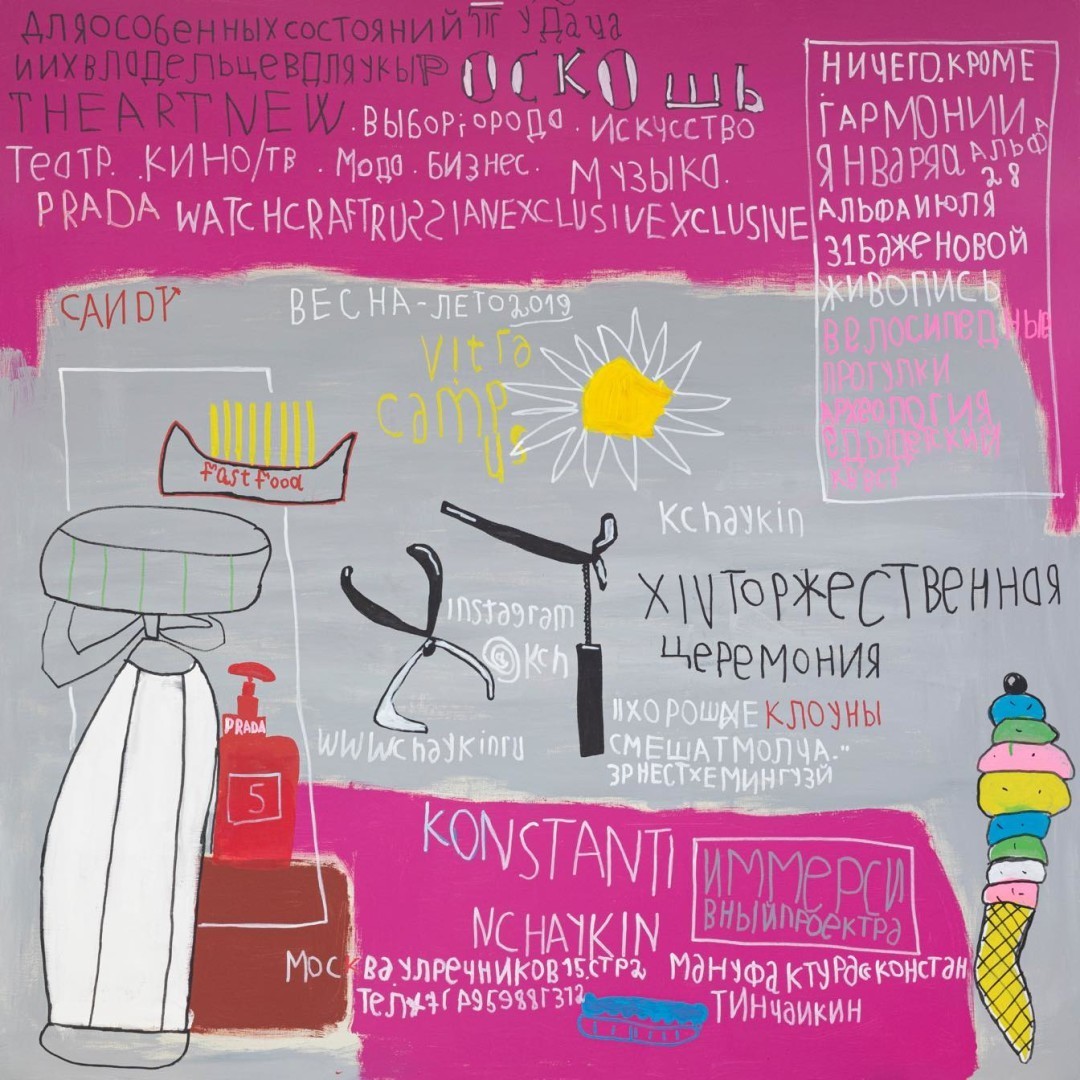 ДЛЯОСОБЕННЫХСОСТОЯНИЙ УДАЧА
ИИХВЛАДЕЛЬЦЕВДЛЯУКЫР ОСКОШЬ
THEARTNEW.ВЫБОРГОРОДА.ИСКУССТВО
ТЕАТР..КИНО/ТВ.МОДА.БИЗНЕС.МУЗЫКА.
PRADA WATCHCRAFTRUSSIANEXCLUSIVEXCLUSIVE
НИЧЕГО.КРОМЕ
ГАРМОНИИ
ЯНВАРЯА АЛЬФА
28
АЛЬФАИЮЛЯ
31БАЖЕНОВОЙ
ЖИВОПИСЬ
ВЕЛОСИПЕДНЫЕ
ПРОГУЛКИ
АРХЕОЛОГИЯ
CANDY
ВЕСНА-ЛЕТО2019
vitra
camp
us
fastfood
kchaykin
XIVТОРЖЕСТВЕННАЯ
ЦЕРЕМОНИЯ
instagram
@kch
"ХОРОШИЕ КЛОУНЫ
СМЕШАТМОЛЧА."
ЭРНЕСТХЕМИНГУЭЙ
wwwchaykinru
PRADA
5
KONSTANTI
NCHAYKIN
ИММЕРСИ
ВНЫЙПРОЕКТРА
МОСКВА.УЛРЕЧНИКОВ15.СТР2 МАНУФАКТУРА«КОНСТАН
ТИНЧАЙКИН